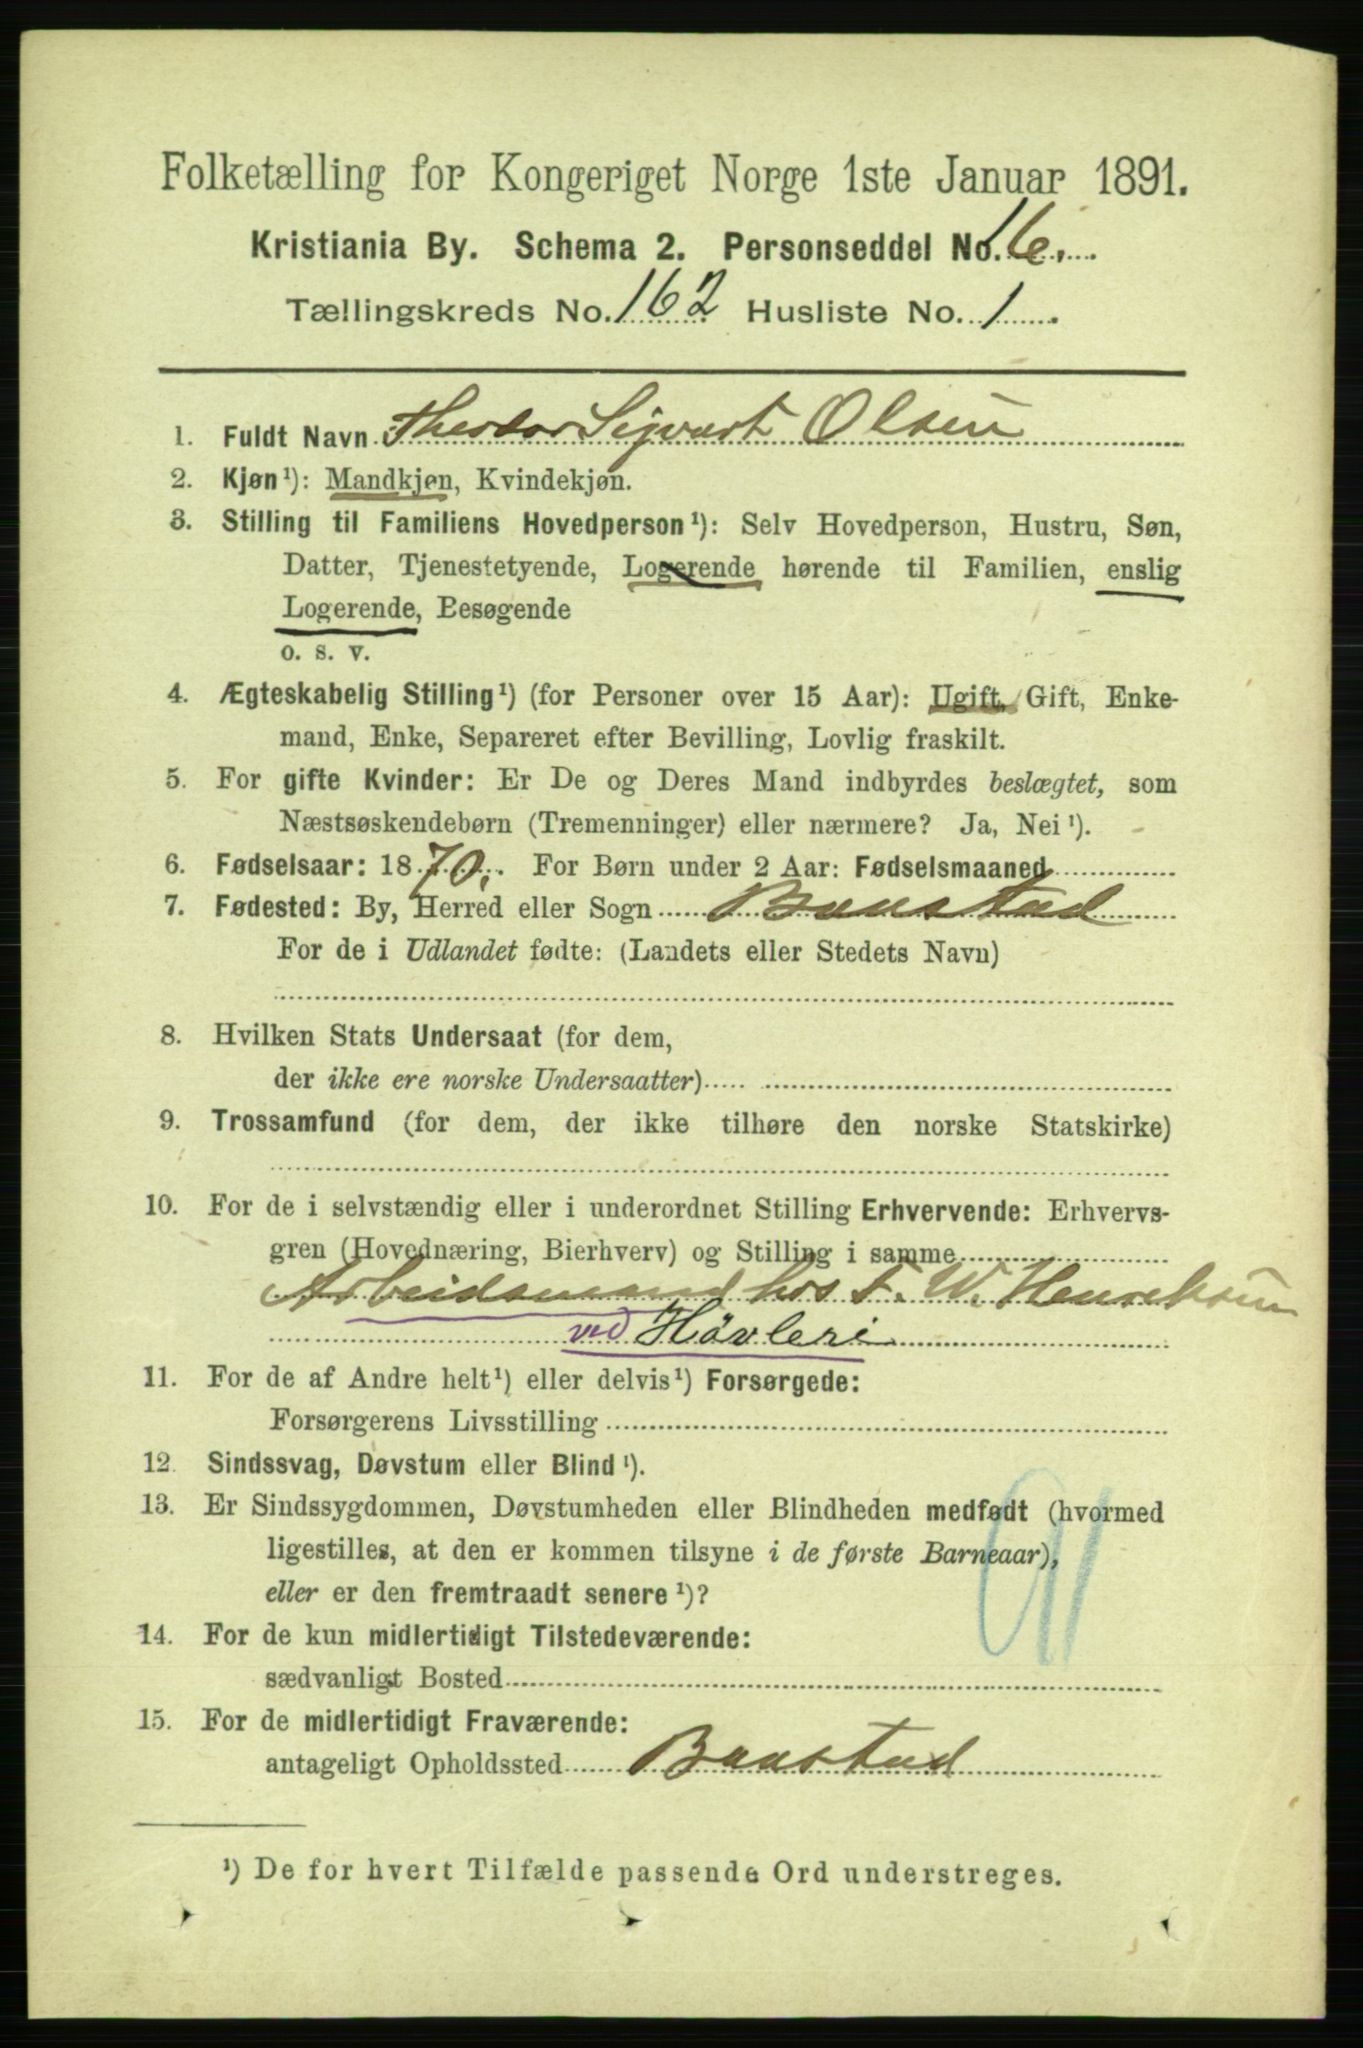 Folketælling for Kongeriget Norge 1ste Januar 1891.
Kristiania By. Schema 2. Personseddel No. 16.
Tællingskreds No. 162 Husliste No. 1.
1. Fuldt Navn Theodor Sigvart Olsen
2. Kjøn¹): Mandkjøn, Kvindekjøn.
3. Stilling til Familiens Hovedperson¹): Selv Hovedperson, Hustru, Søn,
Datter, Tjenestetyende, Logerende hørende til Familien, enslig
Logerende, Besøgende
o. s. v.
4. Ægteskabelig Stilling¹) (for Personer over 15 Aar): Ugift, Gift, Enke-
mand, Enke, Separeret efter Bevilling, Lovlig fraskilt.
5. For gifte Kvinder: Er De og Deres Mand indbyrdes beslægtet, som
Næstsøskendebørn (Tremenninger) eller nærmere? Ja, Nei¹).
6. Fødselsaar: 1870. For Børn under 2 Aar: Fødselsmaaned
7. Fødested: By, Herred eller Sogn Baastad
For de i Udlandet fødte: (Landets eller Stedets Navn)
8. Hvilken Stats Undersaat (for dem,
der ikke ere norske Undersaatter)
9. Trossamfund (for dem, der ikke tilhøre den norske Statskirke)
10. For de i selvstændig eller i underordnet Stilling Erhvervende: Erhvervs-
gren (Hovednæring, Bierhverv) og Stilling i samme
Arbeidsmand hos F. W.
ved Høvleri
11. For de af Andre helt¹) eller delvis¹) Forsørgede:
Forsørgerens Livsstilling
12. Sindssvag, Døvstum eller Blind¹).
13. Er Sindssygdommen, Døvstumheden eller Blindheden medfødt (hvormed
ligestilles, at den er kommen tilsyne i de første Barneaar),
eller er den fremtraadt senere¹)?
14. For de kun midlertidigt Tilstedeværende:
sædvanligt Bosted
15. For de midlertidigt Fraværende:
antageligt Opholdssted Baastad
¹) De for hvert Tilfælde passende Ord understreges.